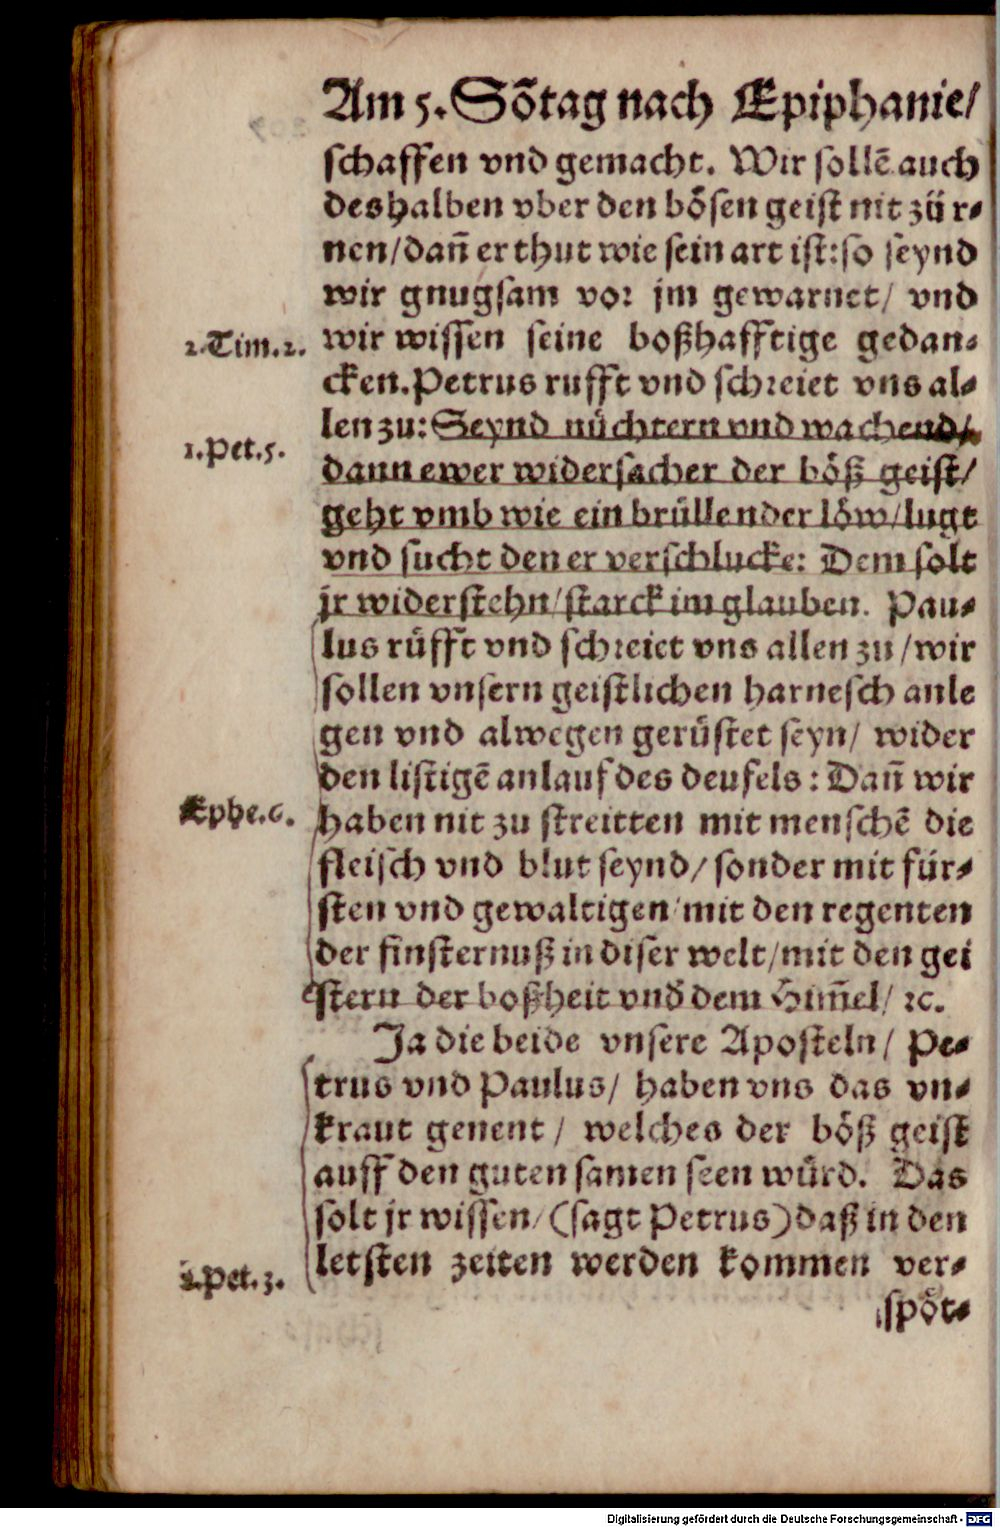 Am 5. Sõtag nach Epiphanie/
schaffen vnd gemacht. Wir sollẽ auch
deshalben vber den bösen geist nit zür⸗
nen/dañ er thut wie sein art ist: so seynd
wir gnugsam vor jm gewarnet/ vnd
2.Tim.2.
wir wissen seine boßhafftige gedan⸗
cken. Petrus rufft vnd schreiet vns al⸗
1.Pet.5.
len zu: Seynd nüchtern vnd wachend/
dann ewer widersacher der böß geist/
geht vmb wie ein brüllender löw/lugt
vnd sucht den er verschlucke: Dem solt
jr widerstehn/starck im glauben. Pau⸗
lus rüfft vnd schreiet vns allen zu/wir
sollen vnsern geistlichen harnesch anle
gen vnd alwegen gerüstet seyn/ wider
den listigẽ anlauf des deufels: Dañ wir
Ephe.6.
haben nit zu streitten mit menschẽ die
fleisch vnd blut seynd/ sonder mit für⸗
sten vnd gewaltigen/mit den regenten
der finsternuß in diser welt/mit den gei
stern der boßheit vnd dem Him̃el/ ꝛc.
Ja die beide vnsere Aposteln/ Pe⸗
trus vnd Paulus/ haben vns das vn⸗
kraut genent/ welches der böß geist
auff den guten samen seen würd. Das
solt jr wissen/(sagt Petrus) daß in den
2.Pet.3.
letsten zeiten werden kommen ver⸗
spöt⸗
Digitalisierung gefördert durch die Deutsche Forschungsgemeinschaft - DFG